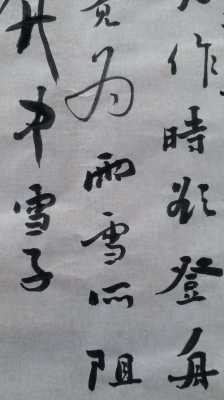 作時欲登舟
為雨雪所阻
中雪子